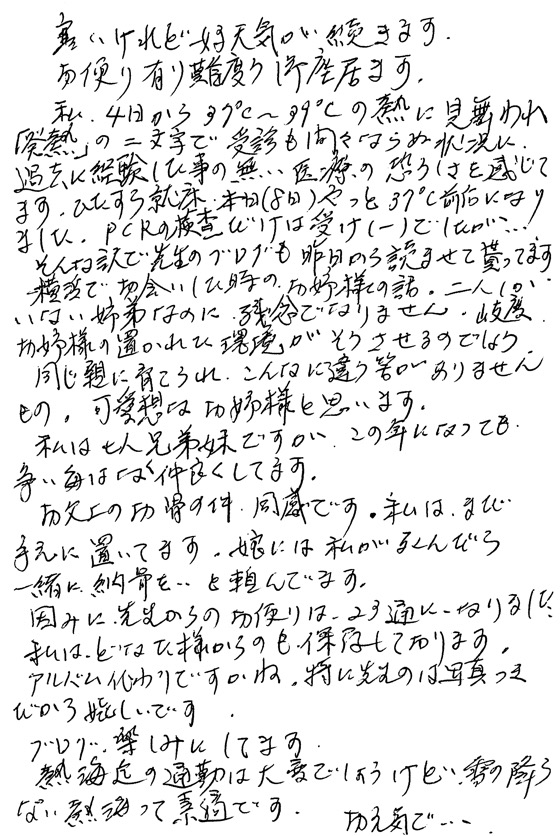 寒いけれど好天気が続きます。
お便り有り難度う御座居ます。
私、4日から39℃〜39℃の熱に見舞われ
「発熱」の二文字で受診も間々ならぬ状況に、
過去に経験した事の無い医療の恐ろしさを感じて
ます。ひたすら就床、本日(8日)やっと37℃前后になり
ました。PCRの検査だけは受け(−)でしたが…
そんな訳で先生のブログも昨日から読ませて貰ってます
横浜でお会いした時のお姉様の話。二人しか
いない姉弟なのに、残念でなりません。岐度、
お姉様の置かれた環境がそうさせるのでしょう
同じ親に育てられ、こんなに違う筈がありません
もの。可愛想なお姉様と思います。
私は七人兄弟妹ですが、この年になっても
争い毎はなく仲良くしてます。
お父上のお骨の件、同感です。私は、まだ
手元に置いてます。娘には私が死んだら
一緒に納骨を‥と頼んでます。
因みに先生からのお便りは、23通になりました
私は、どなた様からのも保存しております。
アルバム代わりですかね。特に先生のは写真つき
だから嬉しいです。
ブログ、楽しみにしてます。
熱海迄の通勤は大変でしょうけど、雪の降ら
ない熱海って素適です。 お元気で…